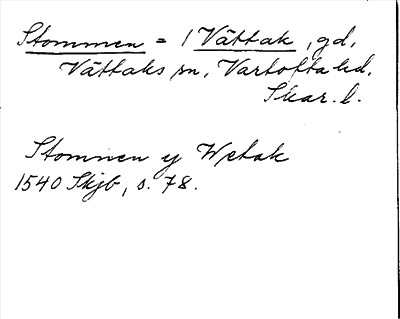 Stommen = 1 Vättak, gd,
Vättaks sn, Vartofta hd,
Skar. l.
Stommen y Wetak
1540 Skjb, s. 78.